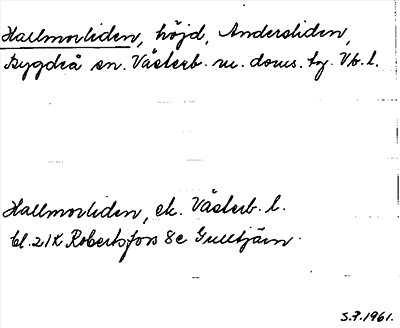 Hallmorliden, höjd, Andersliden,
Bygdeå sn. Västerb. m. doms. tg. Vb. l.
Hallmorliden, ek. Västerb. l.
bl. 21K Robertsfors 8c Gulltjärn.
S.F. 1961.